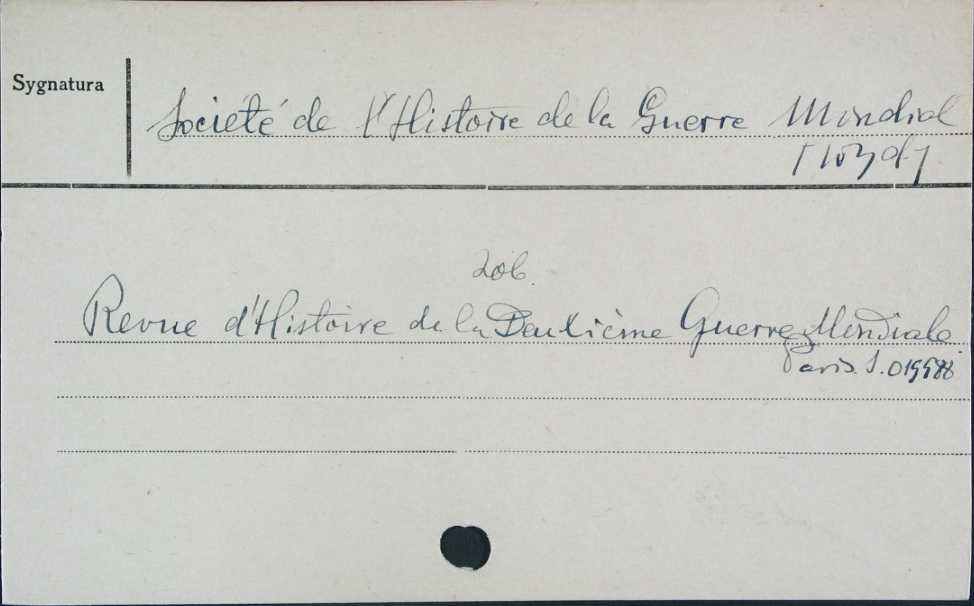 Sygnatura
Société de l'Histoire de la Guerre Mindial
zob.
Revue d'Histoire de la Deuxième Guerre Mindiale
Paris. S. 019588